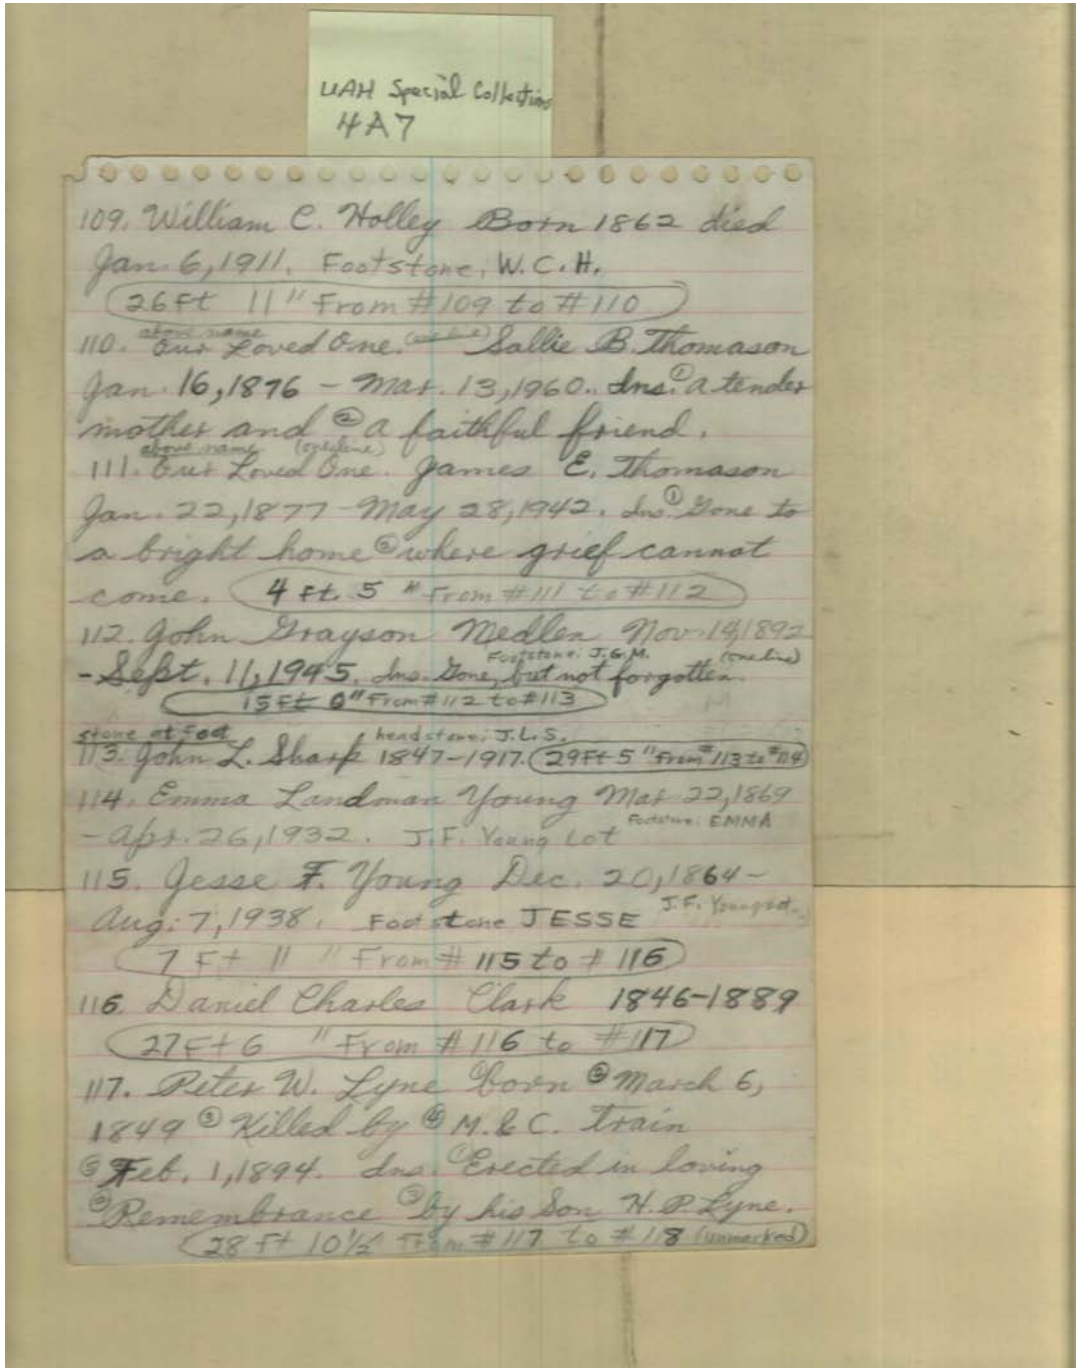 UAH Special Collections
4A7
109. William C. Holley Born 1862 died
Jan. 6, 1911. Footstone: W.C.H.
26 Ft 11" From #109 to #110
above name
110. Our Loved One. Sallie B. Thomason
Jan. 16, 1876 - Mar. 13, 1960. Ins. ① a tender
mother and ② a faithful friend.
above name (one line)
111. Our Loved One. James E. Thomason
Jan. 22, 1877 - May 28, 1942. Ins. ① Gone to
a bright home ② where grief cannot
come. 4 Ft. 5 " From #111 to #112
112. John Grayson Medlen Nov. 14, 1892
Footstone: J.G.M. (one line)
- Sept. 11, 1945. Ins. Gone, but not forgotten.
15 Ft 0" From #112 to #113
stone at foot headstone: J.L.S.
113. John L. Sharp 1847-1917. 29 Ft 5 " From #113 to #114
114. Emma Landman Young Mar 22, 1869
Footstone: EMMA
- Apr. 26, 1932. J.F. Young Lot
115. Jesse F. Young Dec. 20, 1864 -
Aug. 7, 1938. Footstone JESSE J.F. Young Lot
7 Ft 11 " From #115 to #116
116. Daniel Charles Clark 1846-1889
27 Ft 6 " From #116 to #117
117. Peter W. Lyne ① born ② March 6,
1849 ③ Killed by ④ M. & C. train
⑤ Feb. 1, 1894. Ins. ① Erected in loving
② Remembrance ③ by his Son H. P. Lyne.
28 Ft 10½" From #117 to #118 (unmarked)